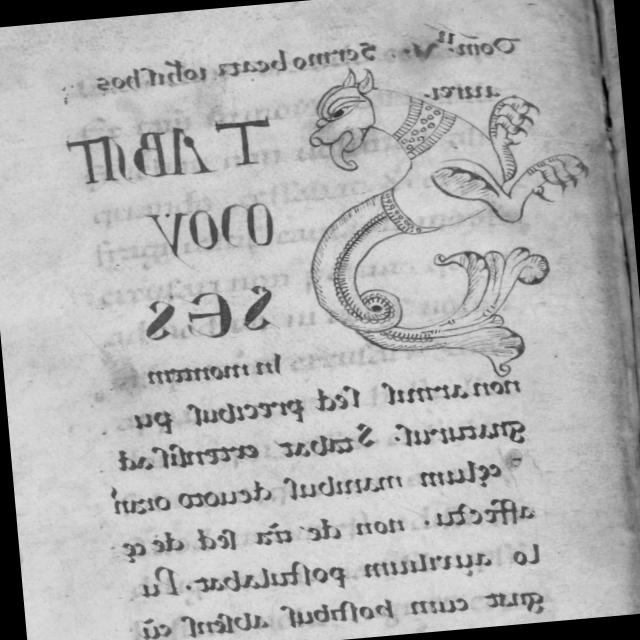 Sermo beati iohiſ hos
aurei.
TABAT
MOY
SES
In montem
non armiſ ſed precibuſ pu
gnaturuſ. Stabat extenſiſ ad
cęlum manibuſ deuoto oranſ
affectu. non de tr̄a ſed de cę
lo auxilium poſtulabat. Pu
gnat cum hoſtibuſ abſenſ cū